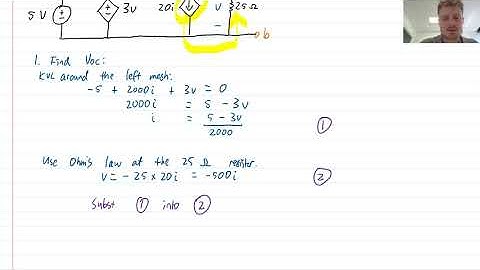 5 V
3v
20i
v
-
25 Ω
b
1. Find Voc:
KVL around the left mesh:
-5 + 2000i + 3v = 0
2000i = 5 - 3v
i = 5 - 3v
2000
①
Use Ohm's law at the 25 Ω resistor.
v = -25 × 20i = -500i
②
Subst ① into ②